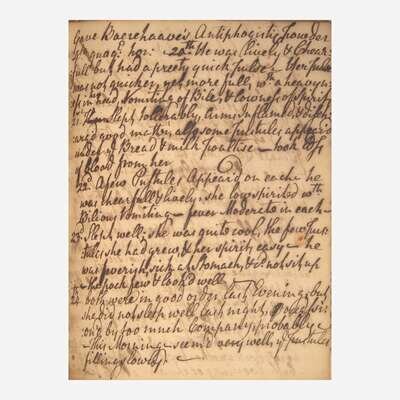 Gave Boerhaave's Antiphogistic Powder
quaq: hor: 20th He was Lively & Chear-
full but had a preety quick Pulse - Her pulse
was not quicker, yet more full, wth a heavyness
in head, Vomiting of Bile, & lowness of spirits
21 Then Slept tollerably, Arms inflamed &
good matter, also some pustules appeard
under ye Bread & milk poultise - took
of blood from her
22d A few Pustules Appeard on each - he
was chearfull, lively, she low spirited wth
Bilious Vomiting - fever Moderate in each -
23 Slept well, she was quite cool, the few pus-
tules she had grew, & her spirits easy - he
was feverish, sick at Stomach, & did not sit up
the pock few & look'd well
24 both were in good order last Evening, but
she did not sleep well last night,
by too much Company probably -
this Morning seem'd very well, ye pustules
filling slowly